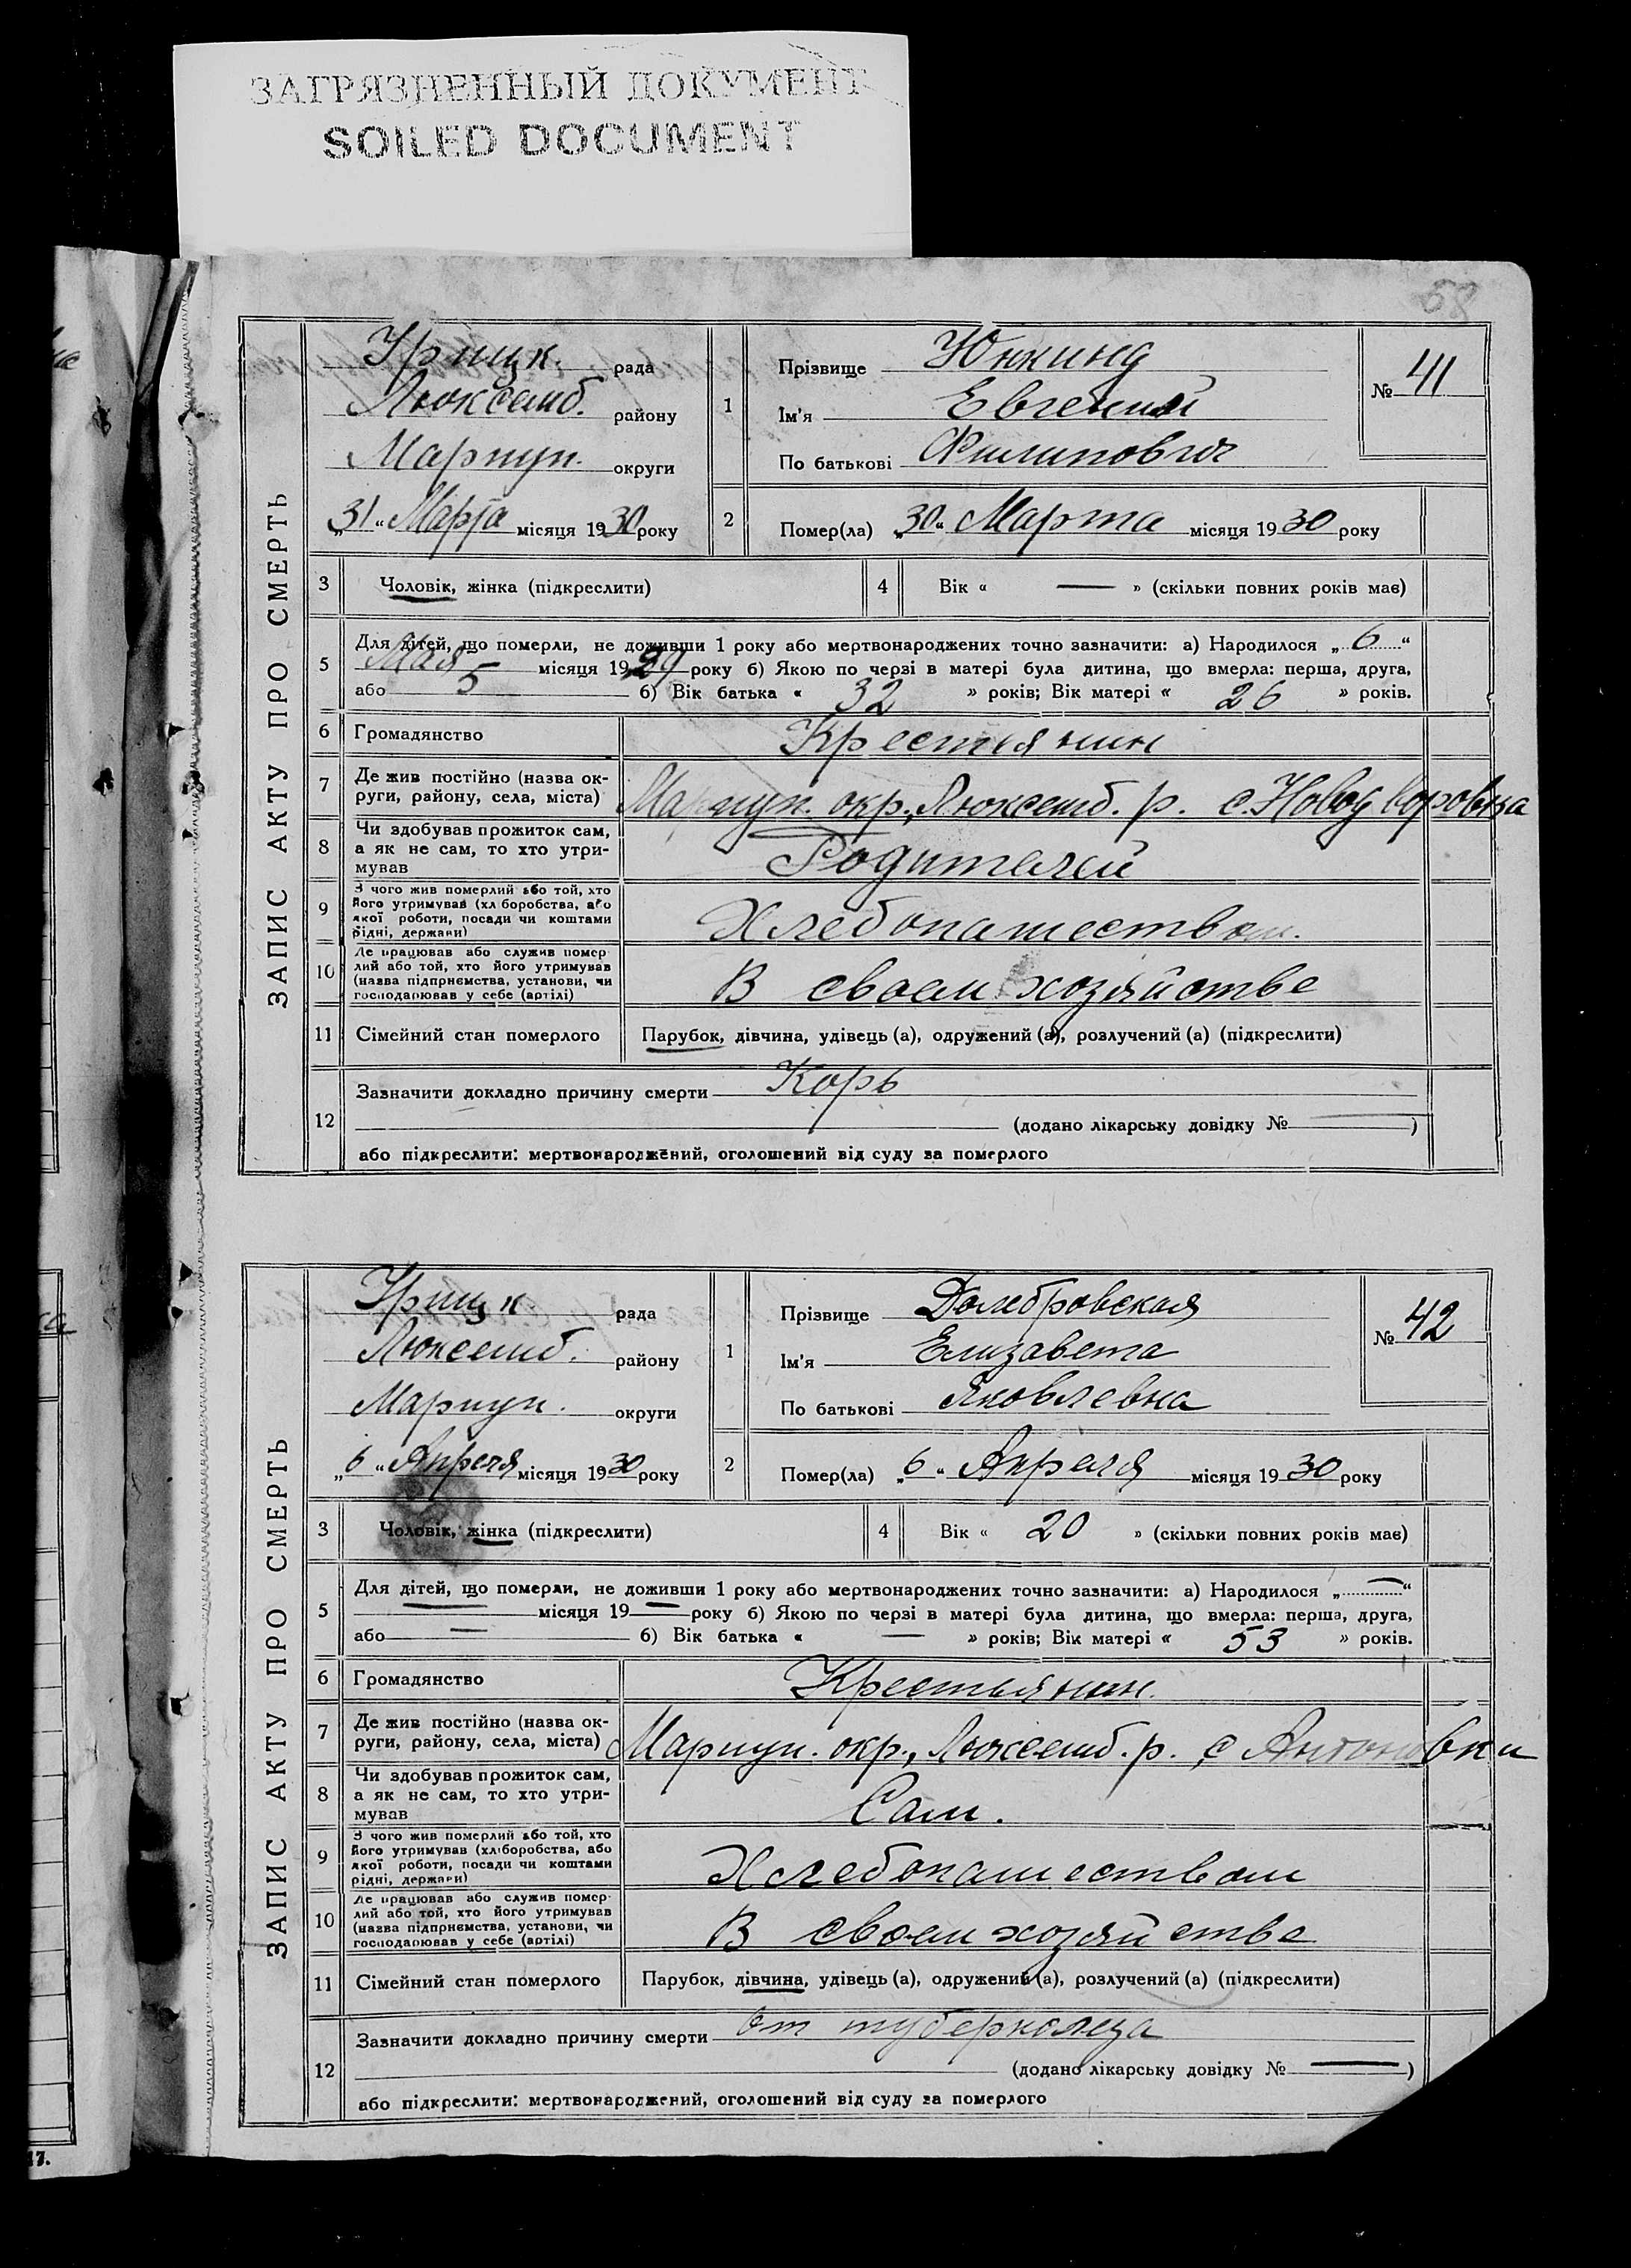 ЗАГРЯЗНЕННЫЙ ДОКУМЕНТ
SOILED DOCUMENT
58
ЗАПИС АКТУ ПРО СМЕРТЬ
Урицк. рада
Люксемб. району
Мариуп. округи
„31“ Марта місяця 1930 року
1 Прізвище Юнкинд
Ім'я Евгений
По батькові Филипович
№ 41
2 Помер(ла) „30“ Марта місяця 1930 року
3 Чоловік, жінка (підкреслити)
4 Вік « — » (скільки повних років має)
5 Для дітей, що померли, не доживши 1 року або мертвонароджених точно зазначити: а) Народилося „6“
Мая місяця 1929 року б) Якою по черзі в матері була дитина, що вмерла: перша, друга,
або 5 б) Вік батька « 32 » років; Вік матері « 26 » років.
6 Громадянство Крестьянин
7 Де жив постійно (назва ок-
руги, району, села, міста) Мариуп. окр., Люксемб. р. с. Новодворовка
8 Чи здобував прожиток сам,
а як не сам, то хто утри-
мував Родителей
9 З чого жив померлий або той, хто
його утримував (хліборобства, або
якої роботи, посади чи коштами
рідні, держави) Хлебопашеством.
10 Де працював або служив помер-
лий або той, хто його утримував
(назва підприємства, установи, чи
господарював у себе (артілі) В своем хозяйстве
11 Сімейний стан померлого Парубок, дівчина, удівець (а), одружений (а), розлучений (а) (підкреслити)
12 Зазначити докладно причину смерти Корь
(додано лікарську довідку № — )
або підкреслити: мертвонароджений, оголошений від суду за померлого
ЗАПИС АКТУ ПРО СМЕРТЬ
Урицк рада
Люксемб. району
Мариуп. округи
„6“ Апреля місяця 1930 року
1 Прізвище Домбровская
Ім'я Елизавета
По батькові Яковлевна
№ 42
2 Помер(ла) „6“ Апреля місяця 1930 року
3 Чоловік, жінка (підкреслити)
4 Вік « 20 » (скільки повних років має)
5 Для дітей, що померли, не доживши 1 року або мертвонароджених точно зазначити: а) Народилося „—“
— місяця 19 — року б) Якою по черзі в матері була дитина, що вмерла: перша, друга,
або — б) Вік батька « — » років; Вік матері « 53 » років.
6 Громадянство Крестьянин.
7 Де жив постійно (назва ок-
руги, району, села, міста) Мариуп. окр., Люксемб. р. с Антоновки
8 Чи здобував прожиток сам,
а як не сам, то хто утри-
мував Сам.
9 З чого жив померлий або той, хто
його утримував (хліборобства, або
якої роботи, посади чи коштами
рідні, держави) Хлебопашеством
10 Де працював або служив помер-
лий або той, хто його утримував
(назва підприємства, установи, чи
господарював у себе (артілі) В своем хозяйстве
11 Сімейний стан померлого Парубок, дівчина, удівець (а), одружений (а), розлучений (а) (підкреслити)
12 Зазначити докладно причину смерти от туберколеза
(додано лікарську довідку № — )
або підкреслити: мертвонароджений, оголошений від суду за померлого
17.